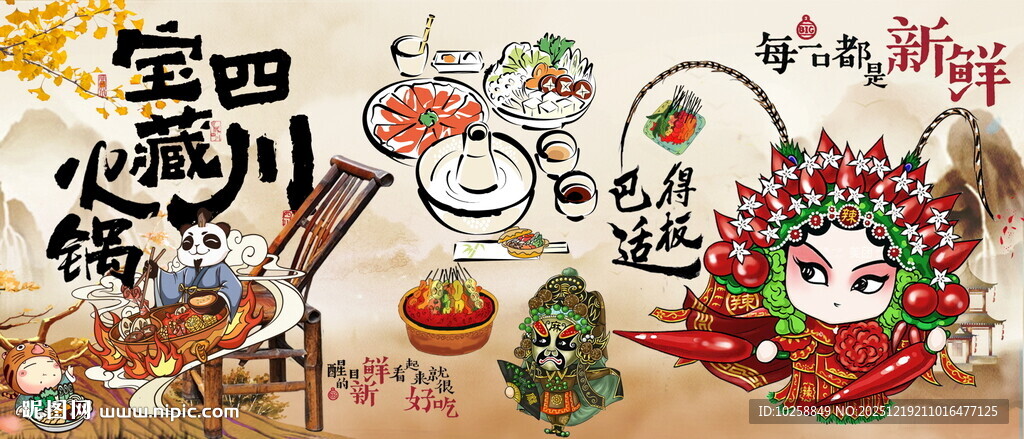 四川
宝藏
火锅
每一口都是新鲜
BIG
巴适
得板
辣
辣
辣
醒目的新鲜
看起来就很好吃
昵图网 www.nipic.com
ID:10258849 NO.20251219211016477125